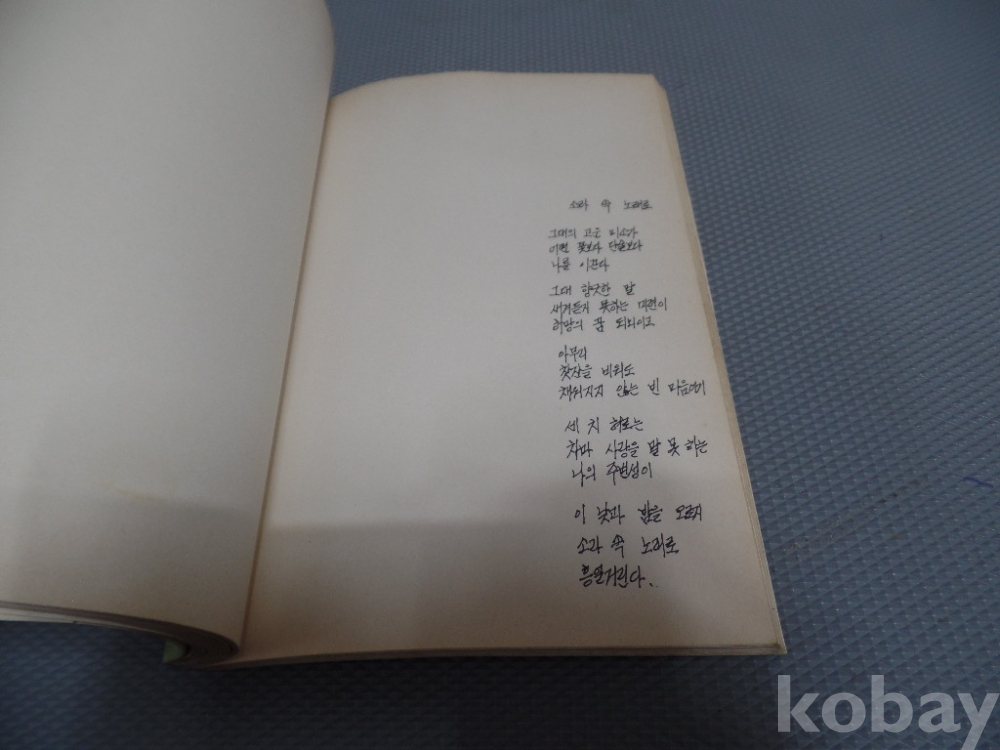 소라 속 노래로
그대의 고운 미소가
어떤 꽃보다 단술보다
나를 이끈다
그대 향긋한 말
새겨듣지 못하는 미련이
희망의 꿈 되되이고
아무리
찻잔을 비워도
채워지지 않는 빈 마음에
세 치 혀로는
차마 사랑을 말 못 하는
나의 주변성이
이 낮과 밤을 오로지
소라 속 노래로
흥얼거린다.
kobay